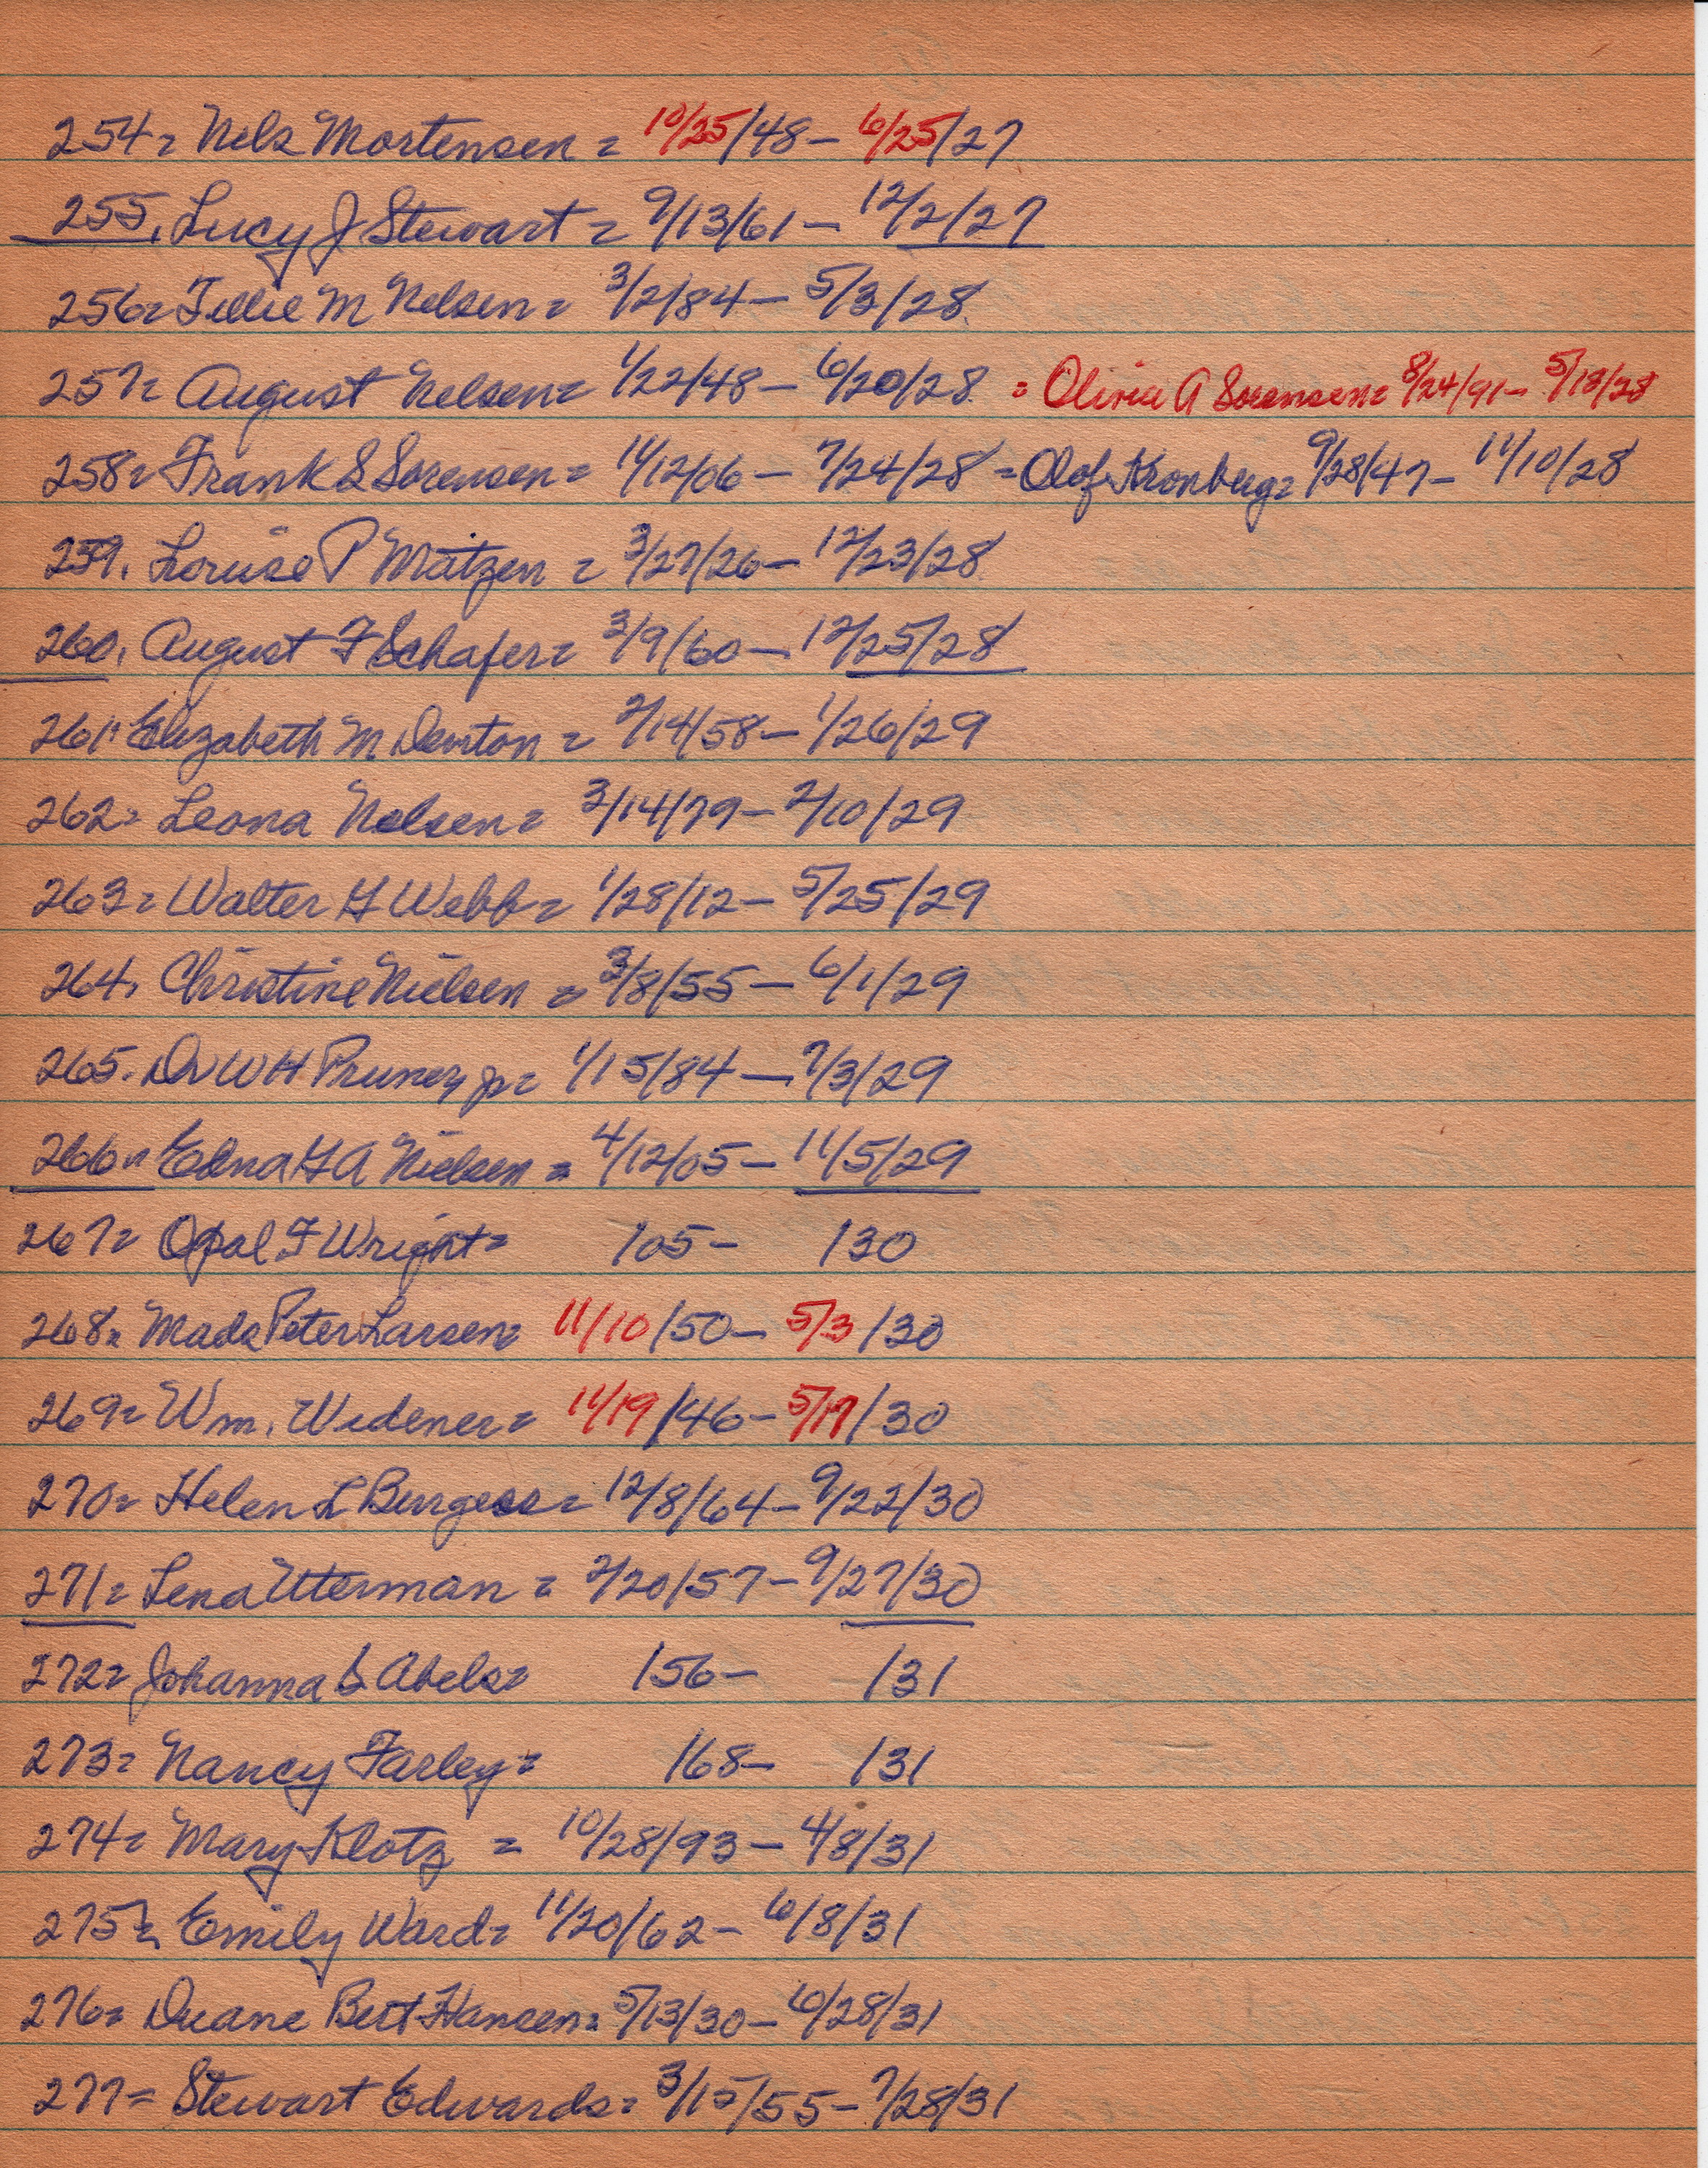 254= Nels Mortensen = 10/25/48 - 6/25/27
255. Lucy J Stewart = 9/13/61 - 12/2/27
256= Tillie M Nelsen = 3/2/84 - 5/3/28
257= August Nelsen = 1/22/48 - 6/20/28 = Olivia A Sorensen = 8/24/91 - 5/18/28
258= Frank S Sorensen = 11/12/06 - 7/24/28 = Olof Kronberg = 9/28/47 - 11/10/28
259. Louise P Matzen = 3/27/26 - 12/23/28
260. August F Schafer = 3/9/60 - 12/25/28
261= Elizabeth M Denton = 2/14/58 - 1/26/29
262= Leona Nelsen = 3/14/79 - 2/10/29
263= Walter G Webb = 1/28/12 - 5/25/29
264. Christine Nielsen = 3/8/55 - 6/1/29
265. Dr W H Pruney jr = 1/15/84 - 7/3/29
266= Edna G A Nielsen = 4/12/05 - 11/5/29
267= Opal F Wright = /05 - /30
268= Mads Peter Larsen = 11/10/50 - 5/3/30
269= Wm. Widener = 11/19/46 - 5/17/30
270= Helen L Burgess = 12/8/64 - 9/22/30
271= Lena Uterman = 2/20/57 - 9/27/30
272= Johanna S Abels = /56 - /31
273= Nancy Farley = /68 - /31
274= Mary Klotz = 10/28/93 - 4/8/31
275= Emily Ward = 11/20/62 - 6/8/31
276= Duane Bert Hansen = 5/13/30 - 6/28/31
277= Stewart Edwards = 3/15/55 - 7/28/31